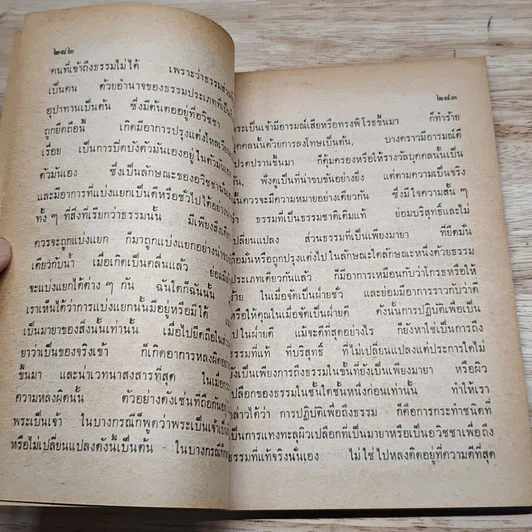 ๒๗๒
คนที่เข้าถึงธรรมไม่ได้ เพราะว่าธรรมส่วนนี้
เป็นตน ด้วยอำนาจของธรรมประเภทที่เป็น
อุปาทานเป็นต้น ซึ่งมีต้นตออยู่ที่อวิชชา
ถูกยึดถือนี้ เกิดมีอาการปรุงแต่งไหลเวียน
เรื่อย เป็นการปิดบังตัวมันเองอยู่ในตัวมัน
ตัวมันเอง ซึ่งเป็นลักษณะของอวิชชา
และมีอาการที่แบ่งแยกเป็นดีหรือชั่วไปได้อย่าง
ทั้ง ๆ ที่สิ่งที่เรียกว่าธรรมนั้น มีเพียงสิ่ง
ควรจะถูกแบ่งแยก ก็มาถูกแบ่งแยกอย่าง
เดียวกับน้ำ เมื่อเกิดเป็นคลื่นแล้ว ย่อม
จะแบ่งแยกได้ต่าง ๆ กัน ฉันใดก็ฉันนั้น
เราเห็นได้ว่าการแบ่งแยกนั้นมีอยู่หรือมีได้
เป็นมายาของสิ่งนั้นเท่านั้น เมื่อไปยึดถือใน
ยาว่าเป็นของจริงเข้า ก็เกิดอาการหลงผิด
ขึ้นมา และน่าเวทนาสงสารที่สุด ในเมื่อ
ความหลงผิดนั้น ตัวอย่างดั่งเช่นที่ถือกัน
พระเป็นเจ้า ในบางกรณีก็พูดว่าพระเป็นเจ้า
หรือไม่เปลี่ยนแปลงดังนี้เป็นต้น ในบางกรณีก็
๒๗๓
พระเป็นเจ้ามีอารมณ์เสียหรือทรงพิโรธขึ้นมา ก็ทำร้าย
บุคคลนั้นด้วยการลงโทษเป็นต้น, บางคราวมีอารมณ์ดี
โปรดปรานขึ้นมา ก็คุ้มครองหรือให้รางวัลบุคคลนั้นเป็น
ต้น, ฟังดูเป็นที่น่าขบขันอย่างยิ่ง แต่ตามความเป็นจริง
ควรจะมีความหมายอย่างเดียวกัน ซึ่งมีใจความสั้น ๆ
ธรรมที่เป็นธรรมชาติเดิมแท้ ย่อมบริสุทธิ์และไม่
เปลี่ยนแปลง ส่วนธรรมที่เป็นเพียงมายา ที่ยึดมั่น
กันหรือถูกปรุงแต่งไปในลักษณะใดลักษณะหนึ่งด้วยธรรม
ประเภทเดียวกันแล้ว ก็มีอาการเหมือนกับว่าโกรธหรือให้
ร้าย ในเมื่อจัดเป็นฝ่ายชั่ว และย่อมมีอาการราวกับว่าดี
หรือให้คุณในเมื่อจัดเป็นฝ่ายดี ดังนั้นการปฏิบัติเพื่อเป็น
ไปในฝ่ายดี แม้จะดีที่สุดอย่างไร ก็ยังหาใช่เป็นการถึง
ธรรมที่แท้ ที่บริสุทธิ์ ที่ไม่เปลี่ยนแปลงแต่ประการใดไม่
ยังเป็นเพียงการถึงธรรมในชั้นที่ยังเป็นเพียงมายา หรือผิว
เปลือกของธรรมในชั้นใดชั้นหนึ่งก่อนเท่านั้น ทำให้เรา
กล่าวได้ว่า การปฏิบัติเพื่อถึงธรรม ก็คือการกระทำชนิดที่
เป็นการแทงทะลุผิวเปลือกที่เป็นมายาหรือเป็นอวิชชาเพื่อถึง
ธรรมที่แท้จริงนั่นเอง ไม่ใช่ไปหลงติดอยู่ที่ความดีที่สุด